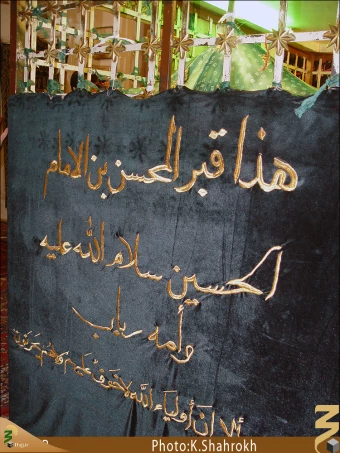 هذا قبر المحسن بن الامام
الحسين سلام الله عليه
وأمه رباب
ألا إن أولياء الله لا خوف عليهم ولا هم يحزنون
Photo:K.Shahrokh